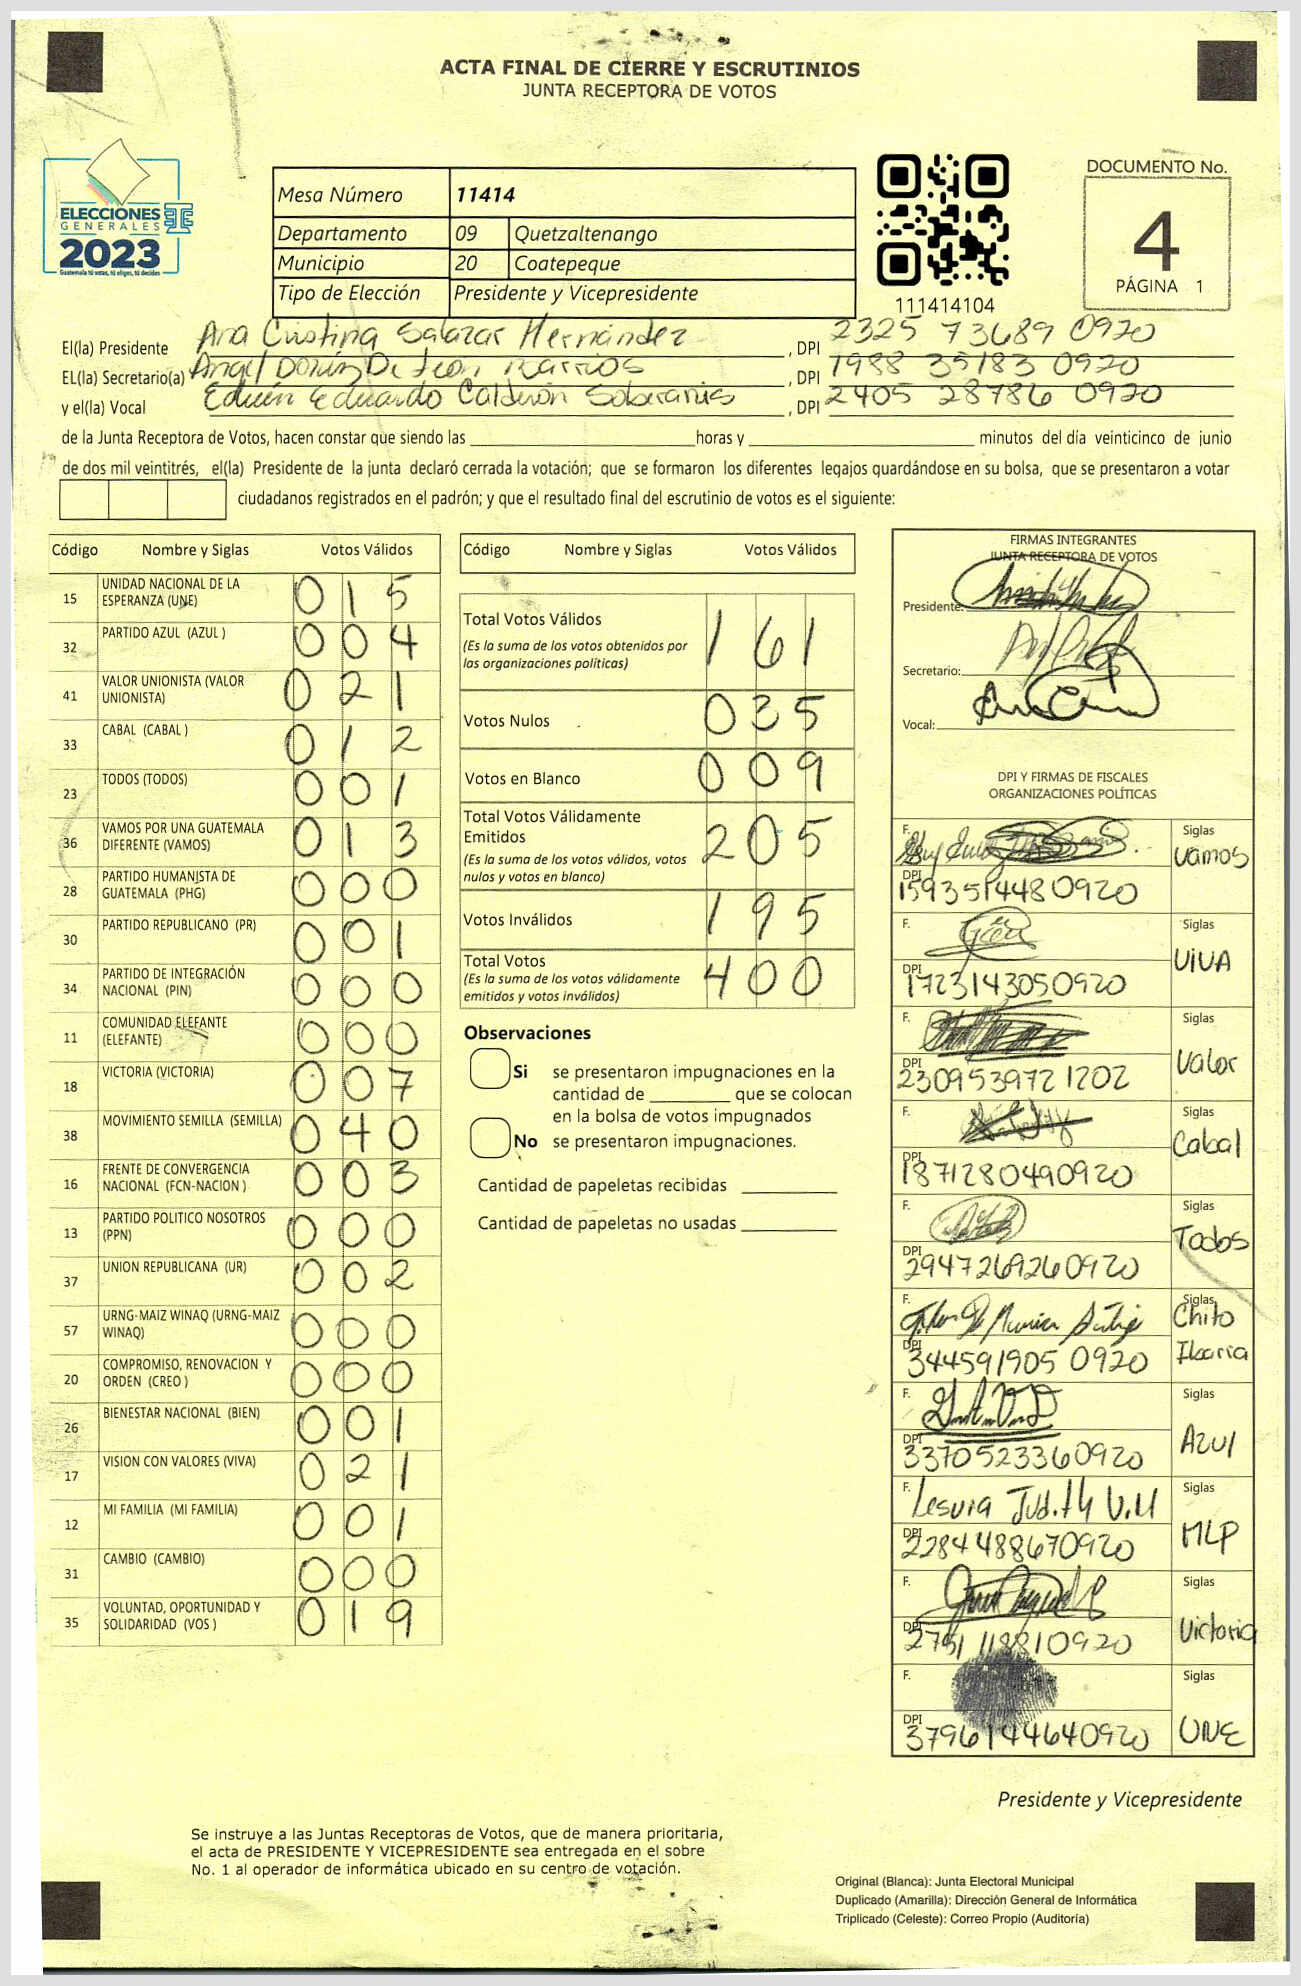 ACTA FINAL DE CIERRE Y ESCRUTINIOS
JUNTA RECEPTORA DE VOTOS
ELECCIONES
GENERALES
2023
Guatemala tú votas, tú eliges, tú decides
Mesa Número 11414
Departamento 09 Quetzaltenango
Municipio 20 Coatepeque
Tipo de Elección Presidente y Vicepresidente
111414104
DOCUMENTO No.
4
PÁGINA 1
El(la) Presidente Ana Cristina Salazar Hernández, DPI 2325 73689 0920
EL(la) Secretario(a) Angel De León Barrios, DPI 1988 35183 0920
y el(la) Vocal Eduardo Calderón Soberanis, DPI 2405 28786 0920
de la Junta Receptora de Votos, hacen constar que siendo las ____ horas y ____ minutos del día veinticinco de junio
de dos mil veintitrés, el(la) Presidente de la junta declaró cerrada la votación; que se formaron los diferentes legajos guardándose en su bolsa, que se presentaron a votar
ciudadanos registrados en el padrón; y que el resultado final del escrutinio de votos es el siguiente:
Código Nombre y Siglas Votos Válidos
15 UNIDAD NACIONAL DE LA ESPERANZA (UNE) 015
32 PARTIDO AZUL (AZUL ) 004
41 VALOR UNIONISTA (VALOR UNIONISTA) 021
33 CABAL (CABAL ) 012
23 TODOS (TODOS) 001
36 VAMOS POR UNA GUATEMALA DIFERENTE (VAMOS) 013
28 PARTIDO HUMANISTA DE GUATEMALA (PHG) 000
30 PARTIDO REPUBLICANO (PR) 001
34 PARTIDO DE INTEGRACIÓN NACIONAL (PIN) 000
11 COMUNIDAD ELEFANTE (ELEFANTE) 000
18 VICTORIA (VICTORIA) 007
38 MOVIMIENTO SEMILLA (SEMILLA) 040
16 FRENTE DE CONVERGENCIA NACIONAL (FCN-NACION ) 003
13 PARTIDO POLITICO NOSOTROS (PPN) 000
37 UNION REPUBLICANA (UR) 002
57 URNG-MAIZ WINAQ (URNG-MAIZ WINAQ) 000
20 COMPROMISO, RENOVACION Y ORDEN (CREO ) 000
26 BIENESTAR NACIONAL (BIEN) 001
17 VISION CON VALORES (VIVA) 021
12 MI FAMILIA (MI FAMILIA) 001
31 CAMBIO (CAMBIO) 000
35 VOLUNTAD, OPORTUNIDAD Y SOLIDARIDAD (VOS ) 019
Código Nombre y Siglas Votos Válidos
Total Votos Válidos 161
(Es la suma de los votos obtenidos por
las organizaciones politicas)
Votos Nulos 035
Votos en Blanco 009
Total Votos Válidamente
Emitidos 205
(Es la suma de los votos válidos, votos
nulos y votos en blanco)
Votos Inválidos 195
Total Votos 400
(Es la suma de los votos válidamente
emitidos y votos inválidos)
Observaciones
Si se presentaron impugnaciones en la
cantidad de ____ que se colocan
en la bolsa de votos impugnados
No se presentaron impugnaciones.
Cantidad de papeletas recibidas
Cantidad de papeletas no usadas
FIRMAS INTEGRANTES
JUNTA RECEPTORA DE VOTOS
Presidente:
Secretario:
Vocal:
DPI Y FIRMAS DE FISCALES
ORGANIZACIONES POLÍTICAS
F. Siglas
Vamos
DPI 1593514480920
F. Siglas
VIVA
DPI 1723143050920
F. Siglas
Valor
DPI 2309539721202
F. Siglas
Cabal
DPI 1871280490920
F. Siglas
Todos
DPI 2947269260920
F. Siglas
Chito
Ibarra
DPI 344591905 0920
F. Siglas
Azul
DPI 3370523360920
F. Siglas
MLP
DPI 2284488670920
F. Siglas
Victoria
DPI 2751118810920
F. Siglas
UNE
DPI 3796144640920
Presidente y Vicepresidente
Se instruye a las Juntas Receptoras de Votos, que de manera prioritaria,
el acta de PRESIDENTE Y VICEPRESIDENTE sea entregada en el sobre
No. 1 al operador de informática ubicado en su centro de votación.
Original (Blanca): Junta Electoral Municipal
Duplicado (Amarilla): Dirección General de Informática
Triplicado (Celeste): Correo Propio (Auditoría)